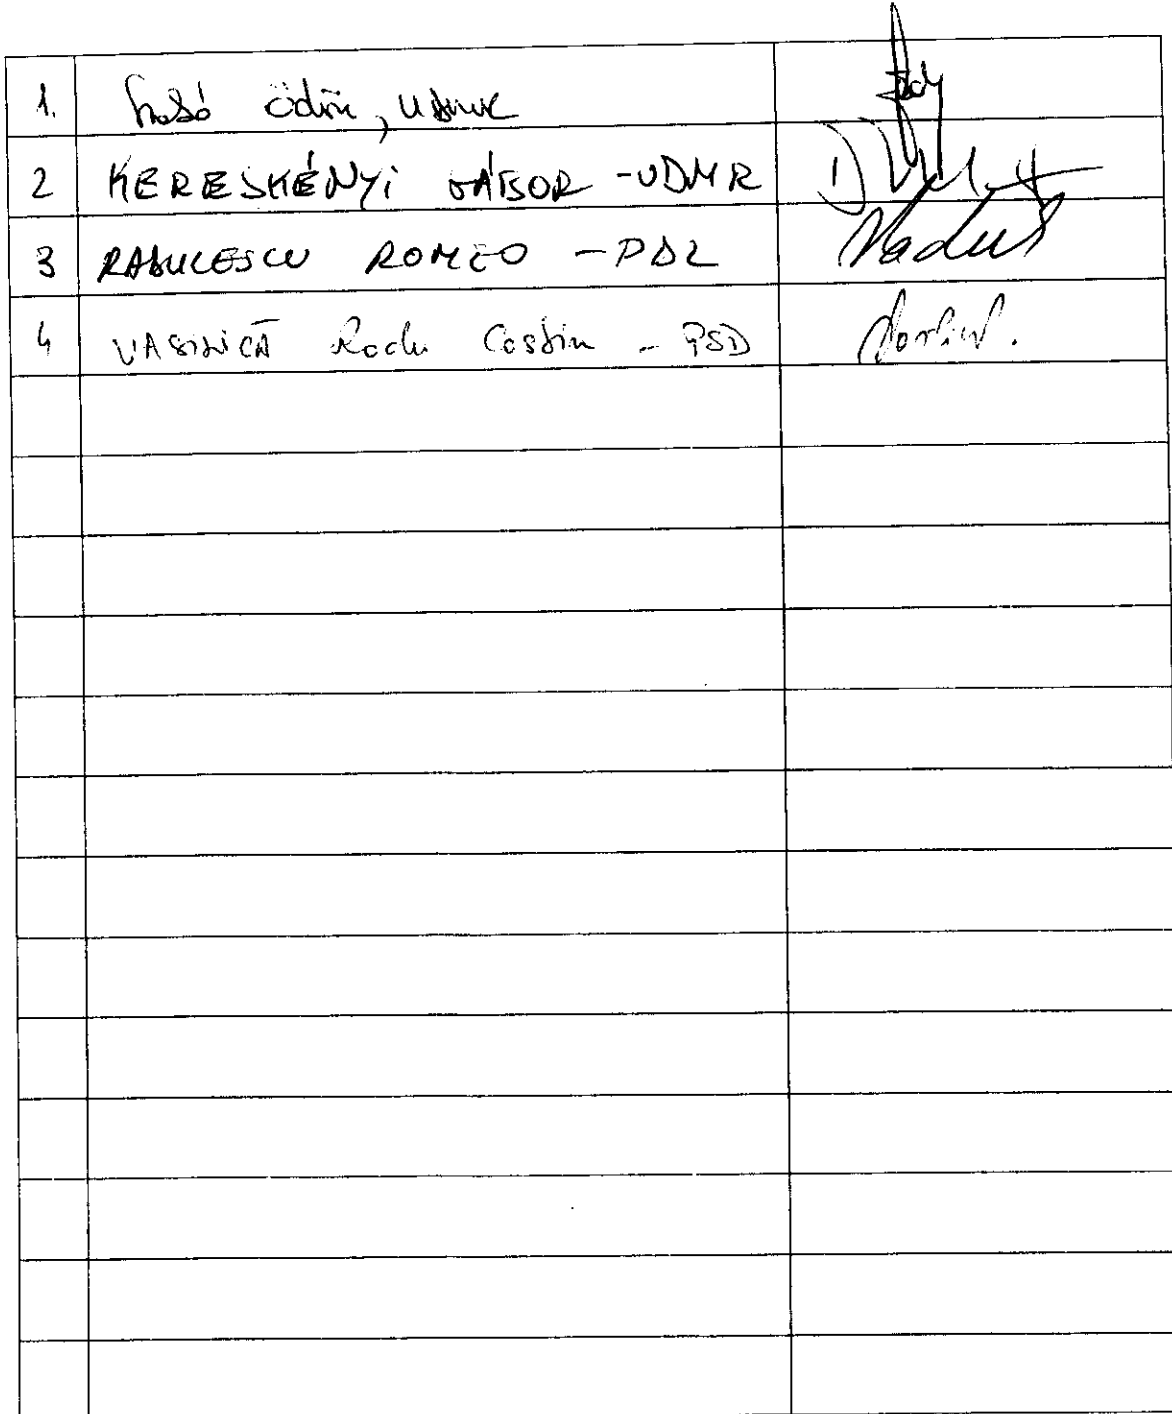 1. Szabó Ödön, UDMR
2 KERESKÉNYI GÁBOR - UDMR
3 RADUCESCU ROMEO - PDL
4 VASILICĂ Radu Costin - PSD